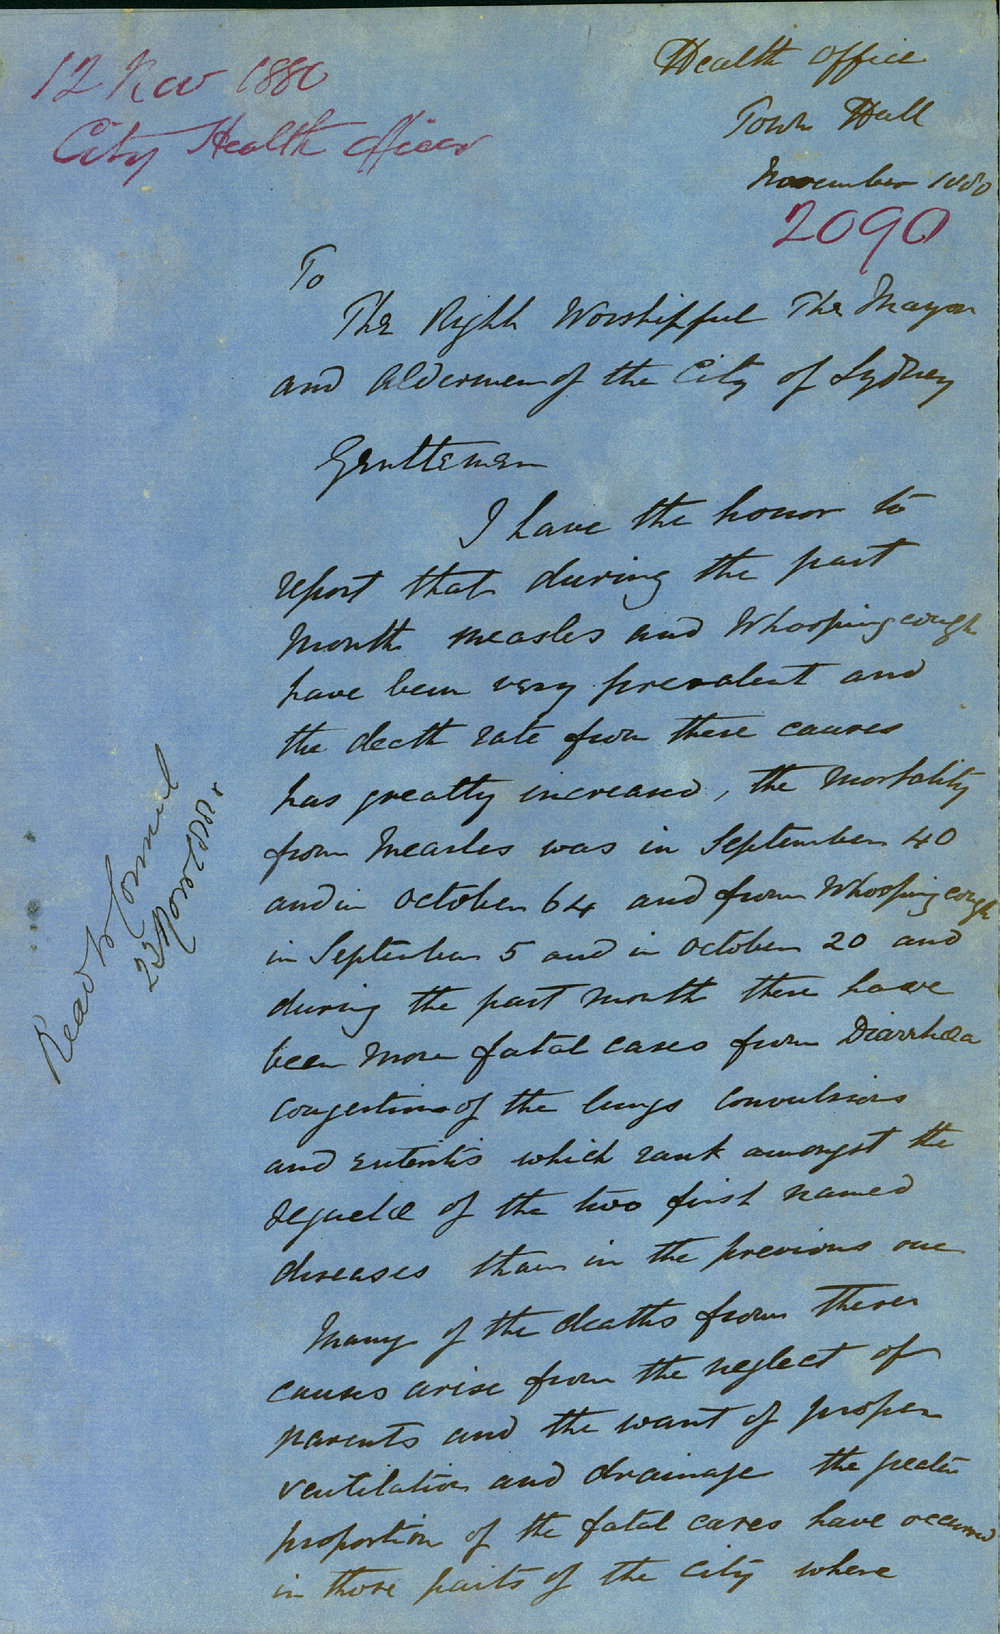 12 Nov 1880
City Health Officer
Health Office
Town Hall
November 1880
2090
To
The Right Worshipful The Mayor
and Aldermen of the City of Sydney
Gentlemen
I have the honor to
report that during the past
Month measles and Whooping cough
have been very prevalent and
the death rate from these causes
has greatly increased, the Mortality
from Measles was in September 40
and in October 64 and from Whooping cough
in September 5 and in October 20 and
during the past Month there have
been More fatal cases from Diarrhœa
congestion of the lungs Convulsions
and enteritis which rank amongst the
sequelæ of the two first named
diseases than in the previous one
Many of the deaths from these
causes arise from the neglect of
parents and the want of proper
ventilation and drainage the greater
proportion of the fatal cases have occurred
in those parts of the City where
Read in Council
23 Nov 1880